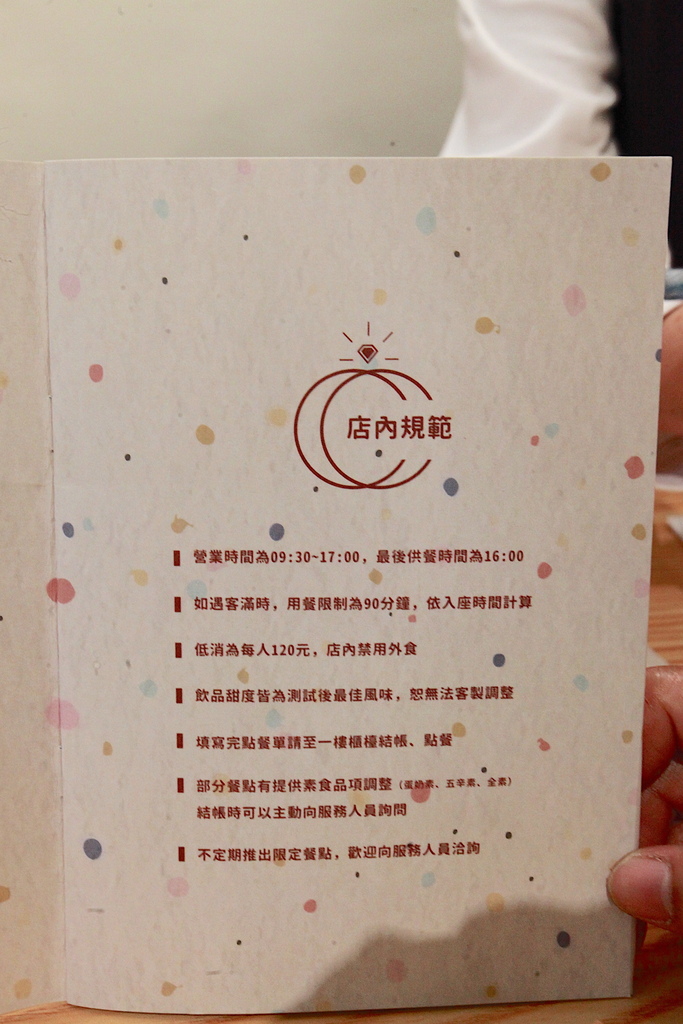 店內規範
營業時間為09:30~17:00，最後供餐時間為16:00
如遇客滿時，用餐限制為90分鐘，依入座時間計算
低消為每人120元，店內禁用外食
飲品甜度皆為測試後最佳風味，恕無法客製調整
填寫完點餐單請至一樓櫃檯結帳、點餐
部分餐點有提供素食品項調整（蛋奶素、五辛素、全素）
結帳時可以主動向服務人員詢問
不定期推出限定餐點，歡迎向服務人員洽詢